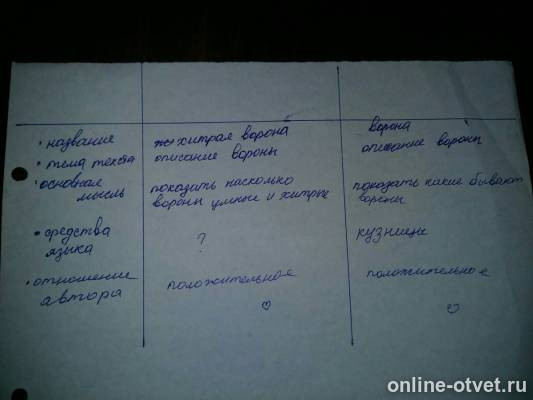 • название хитрая ворона ворона
• тема текста описание вороны описание вороны
• основная мысль показать насколько вороны умные и хитрые показать какие бывают вороны
• средства языка ? кузнецы
• отношение автора положительное положительное
online-otvet.ru